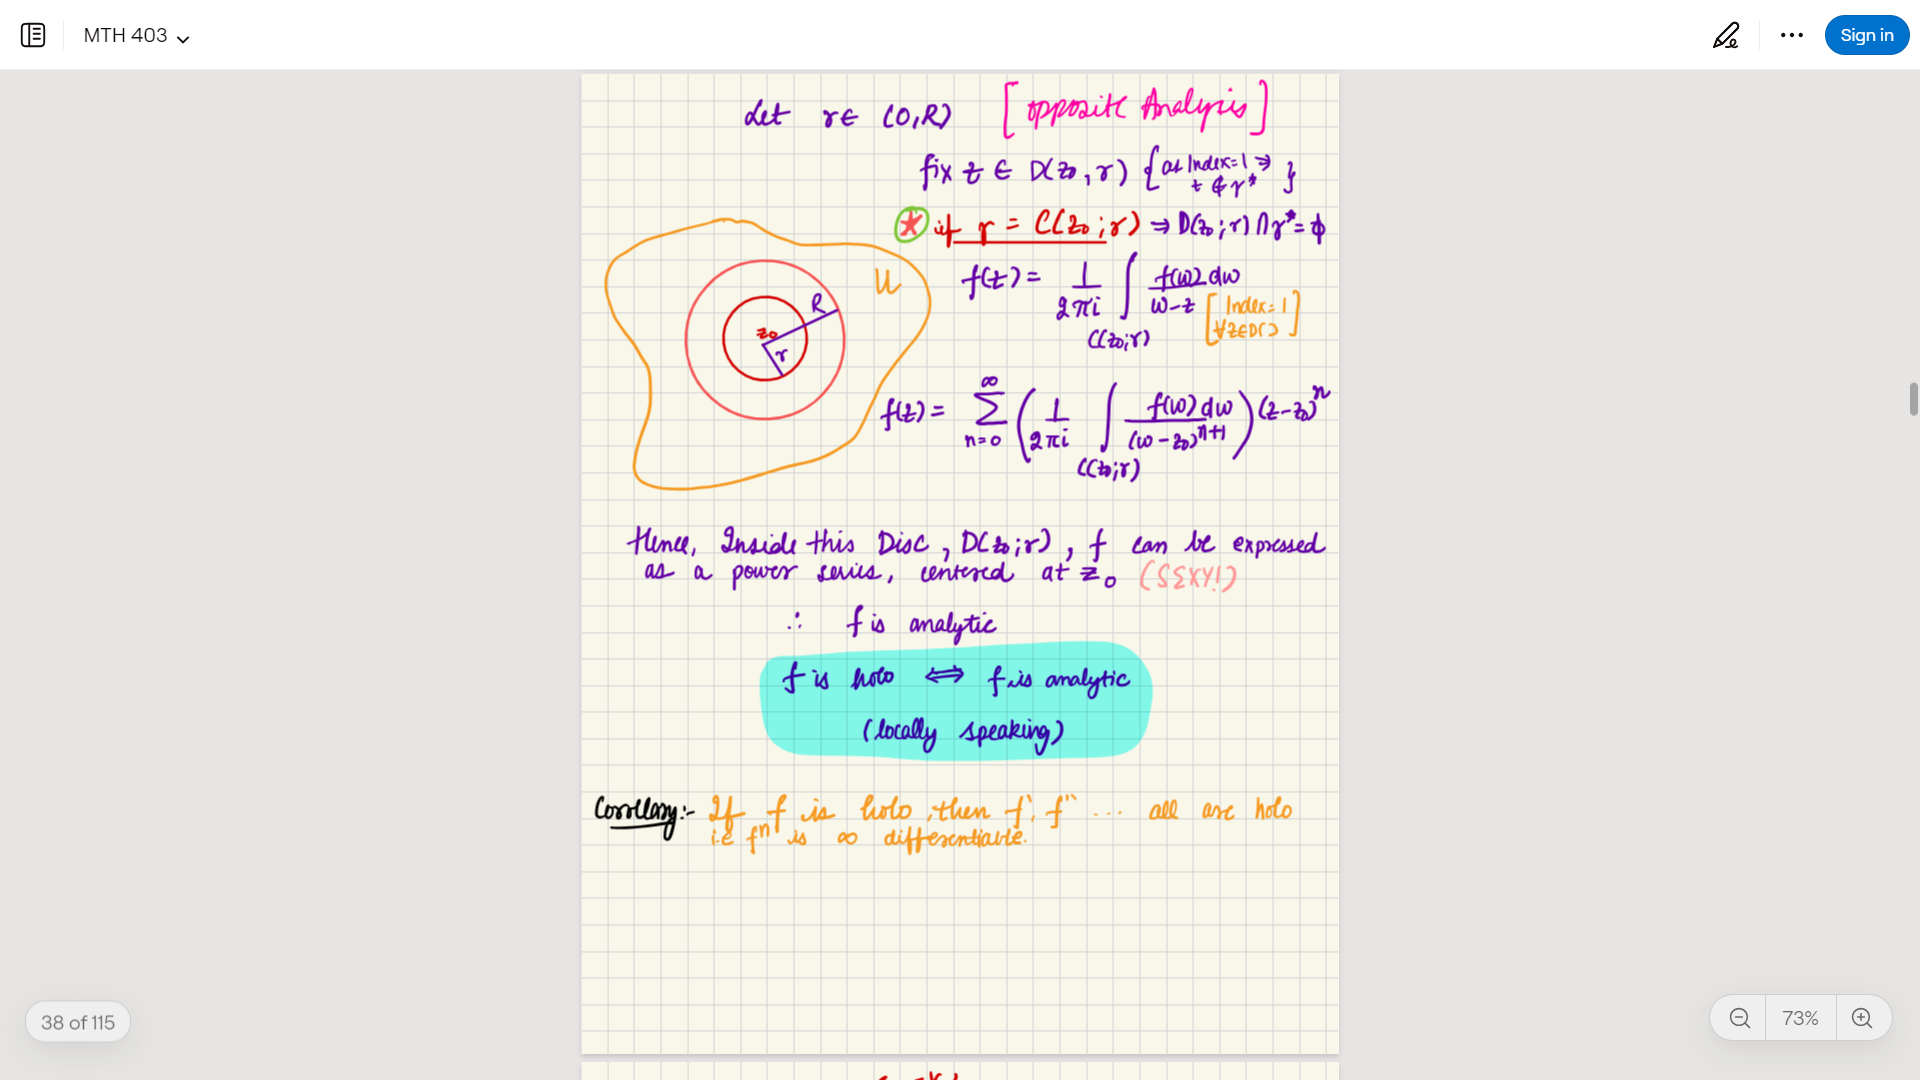 MTH 403
Sign in
Let r ∈ (0,R) [opposite Analysis]
fix z ∈ D(z₀,r) {as Index=1 ⇒
z ∉ γ* }
if γ = C(z₀;r) ⇒ D(z₀;r) ∩ γ* = ϕ
U
R
z₀
r
f(z) = 1/2πi ∫ f(w) dw / w−z
C(z₀;r)
[Index=1
∀z∈D( )]
f(z) = ∞∑n=0 (1/2πi ∫ f(w) dw / (w−z₀)ⁿ⁺¹) (z−z₀)ⁿ
C(z₀;r)
Hence, Inside this Disc, D(z₀;r), f can be expressed
as a power series, centered at z₀ (SΣXY!)
∴ f is analytic
f is holo ⟺ f is analytic
(locally speaking)
Corollary:- If f is holo, then f', f'' ... all are holo
i.e fⁿ is ∞ differentiable.
38 of 115
73%